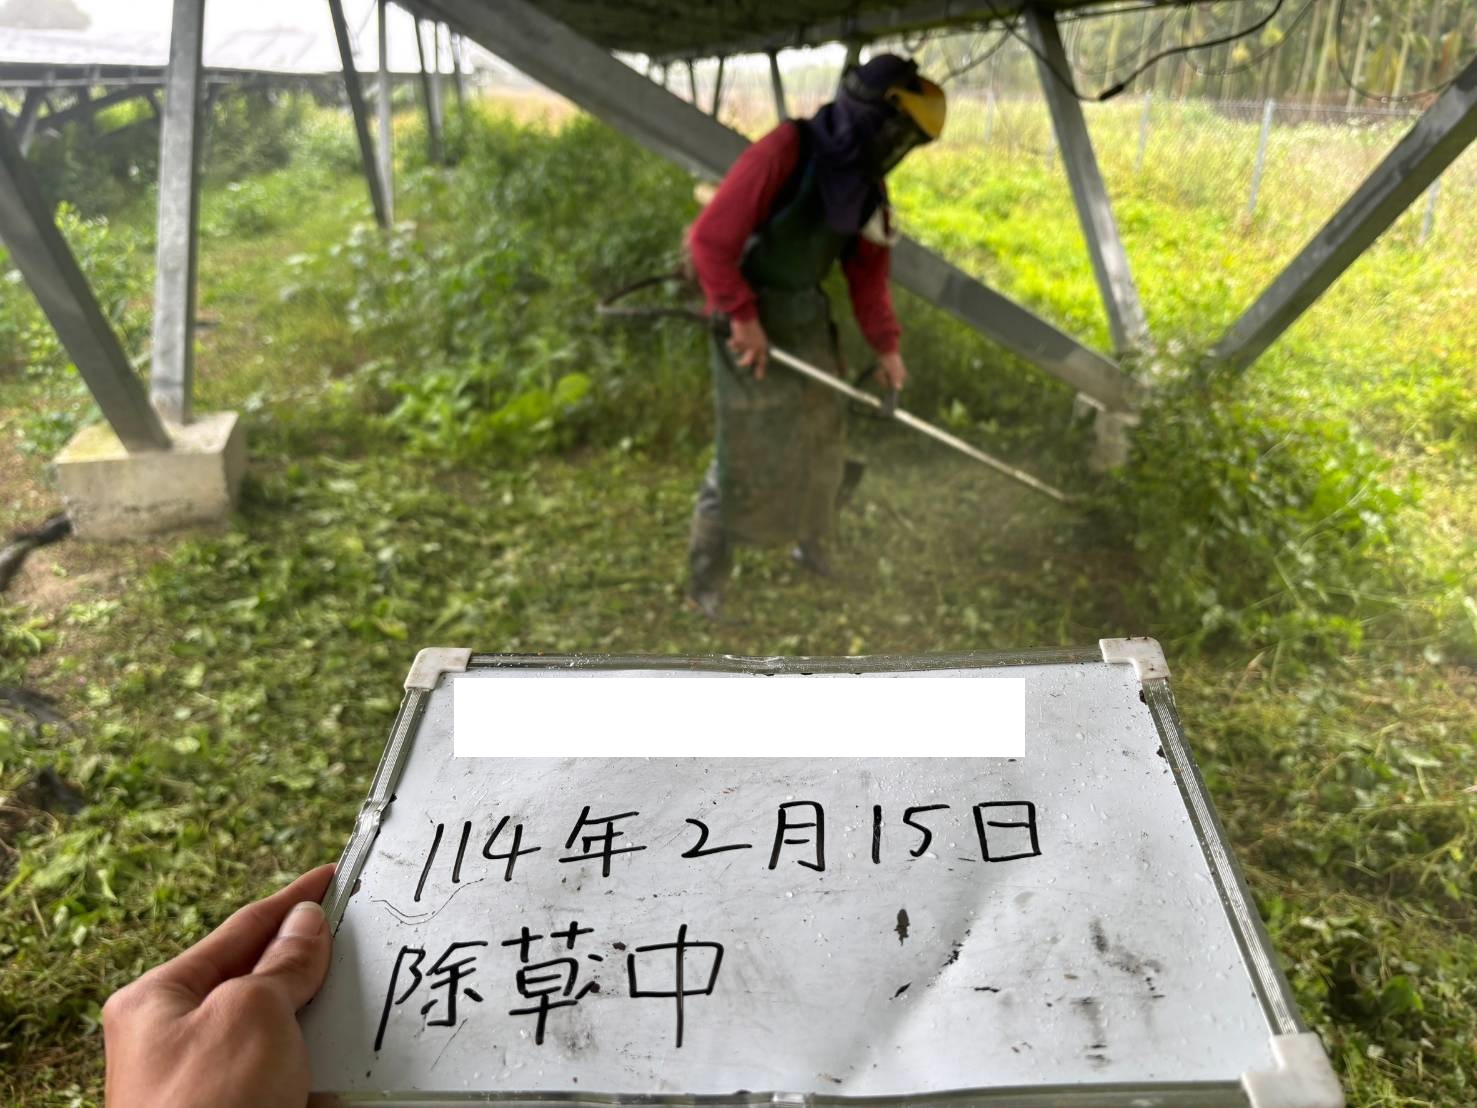 114年2月15日
除草中